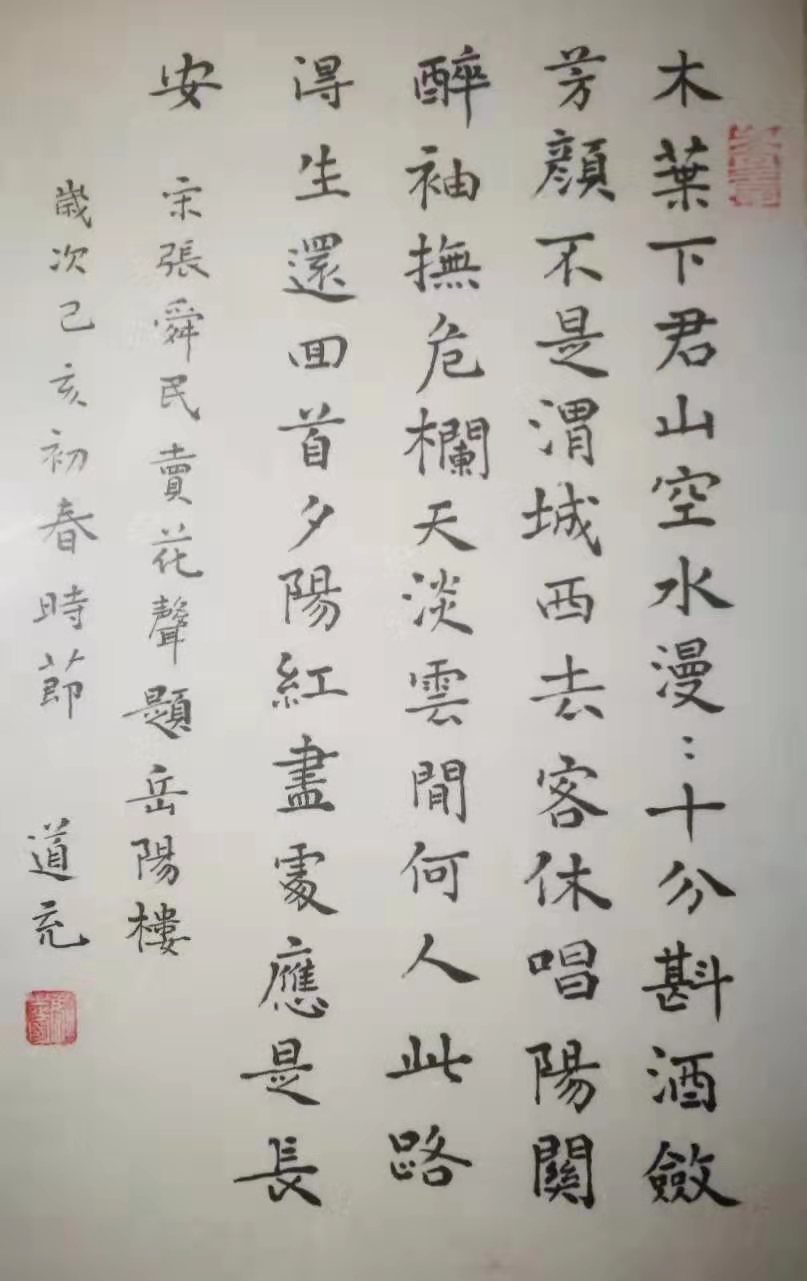 木葉下君山空水漫：十分斟酒斂
芳顏不是渭城西去客休唱陽關
醉袖撫危欄天淡雲閒何人此路
得生還回首夕陽紅盡處應是長
安
宋張舜民賣花聲題岳陽樓
歲次己亥初春時節
道充